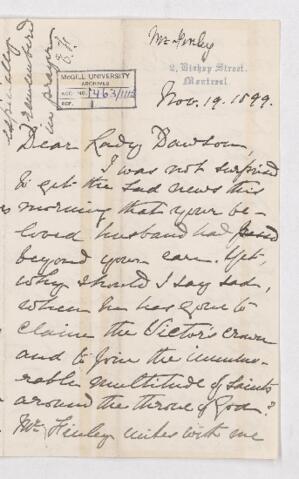 especially
remembered
in prayer
Mr Finley
McGILL UNIVERSITY
ARCHIVES
ACC. NO. 1463/111
REF.
2, Bishop Street.
Montreal.
Nov. 19. 1899.
Dear Lady Dawson,
I was not surprised
to get the sad news this
morning that your be-
loved husband had passed
beyond your care. Yet,
why should I say sad,
when he has gone to
claim the Victor's crown
and to join the innume-
rable multitude of saints
around the throne of God?
Mr Finley unites with me